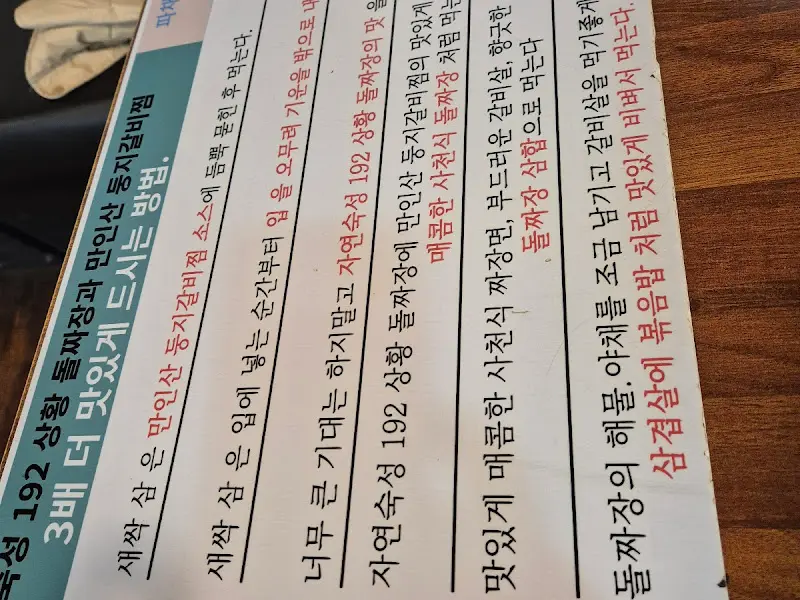 숙성 192 상황 돌짜장과 만인산 둥지갈비찜
3배 더 맛있게 드시는 방법.
새싹 삼 은 만인산 둥지갈비찜 소스에 듬뿍 묻힌 후 먹는다.
새싹 삼 은 입에 넣는 순간부터 입 을 오무려 기운을 밖으로 내
너무 큰 기대는 하지말고 자연숙성 192 상황 돌짜장의 맛 을
자연숙성 192 상황 돌짜장에 만인산 둥지갈비찜의 맛있게
매콤한 사천식 돌짜장 처럼 먹는
맛있게 매콤한 사천식 짜장면, 부드러운 갈비살, 향긋한
돌짜장 삼합으로 먹는다
돌짜장의 해물.야채를 조금 남기고 갈비살을 먹기좋게
삼겹살에 볶음밥 처럼 맛있게 비벼서 먹는다.